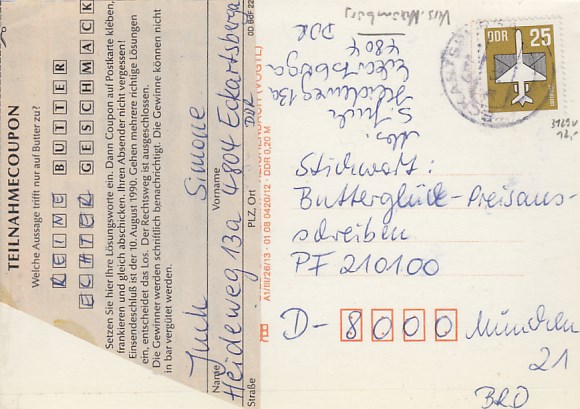 TEILNAHMECOUPON
Welche Aussage trifft nur auf Butter zu?
REINE BUTTER
ECHTER GESCHMACK
Setzen Sie hier Ihre Lösungsworte ein. Dann Coupon auf Postkarte kleben,
frankieren und gleich abschicken. Ihren Absender nicht vergessen!
Einsendeschluß ist der 10. August 1990. Gehen mehrere richtige Lösungen
ein, entscheidet das Los. Der Rechtsweg ist ausgeschlossen.
Die Gewinner werden schriftlich benachrichtigt. Die Gewinne können nicht
in bar vergütet werden.
Juch Simone
Name Vorname
Heideweg 13a 4804 Eckartsberga
DDR
Straße PLZ, Ort
DDR 25
Abs.
S. Juch
Heideweg 13a
Eckartsberga
4804
DDR
Krs. Naumburg
3129v
12,-
A1/III/26/13 - 01 08 0420/12 - DDR 0,20 M
Stichwort:
Butterglück-Preisaus-
schreiben
PF 210100
D- 8000 München
21
BRD